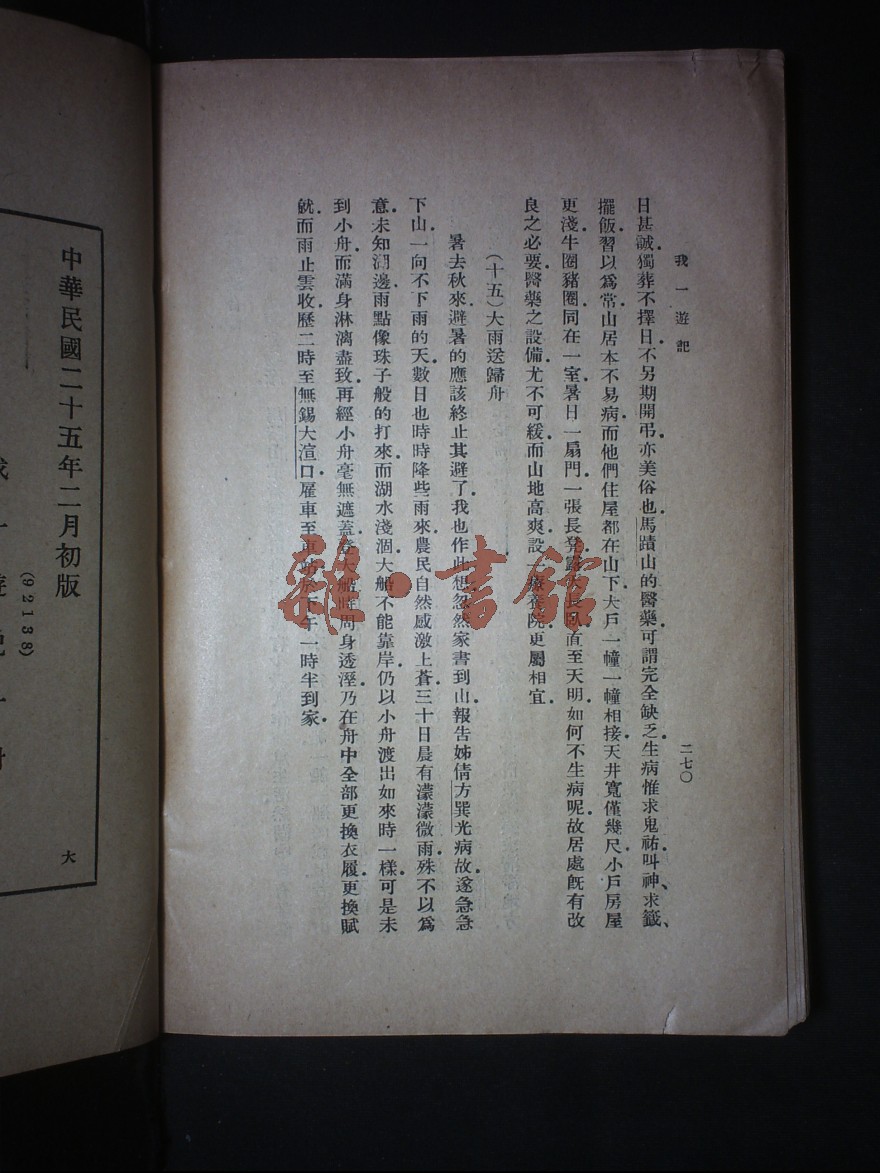 我一遊記
二七〇
日甚誠獨葬不擇日不另期開弔亦美俗也馬蹟山的醫藥可謂完全缺乏生病惟求鬼祐叫神、求籤、
擺飯習以爲常山居本不易病而他們住屋都在山下大戶一幢一幢相接天井寬僅幾尺小戶房屋
更淺牛圈豬圈同在一室暑日一扇門一張長凳露天長臥直至天明如何不生病呢故居處旣有改
良之必要醫藥之設備尤不可緩而山地高爽設一療養院更屬相宜
(十五)大雨送歸舟
暑去秋來避暑的應該終止其避了我也作此想忽然家書到山報告姊倩方巽光病故遂急急
下山一向不下雨的天數日也時時降些雨來農民自然感激上蒼三十日晨有濛濛微雨殊不以爲
意未知湖邊雨點像珠子般的打來而湖水淺涸大船不能靠岸仍以小舟渡出如來時一樣可是未
到小舟而滿身淋漓盡致再經小舟毫無遮蓋登大船時周身透溼乃在舟中全部更換衣履更換賦
就而雨止雲收歷二時至無錫大渲口雇車至車站於下午一時半到家
中華民國二十五年二月初版
(92138)
大
雜·書館